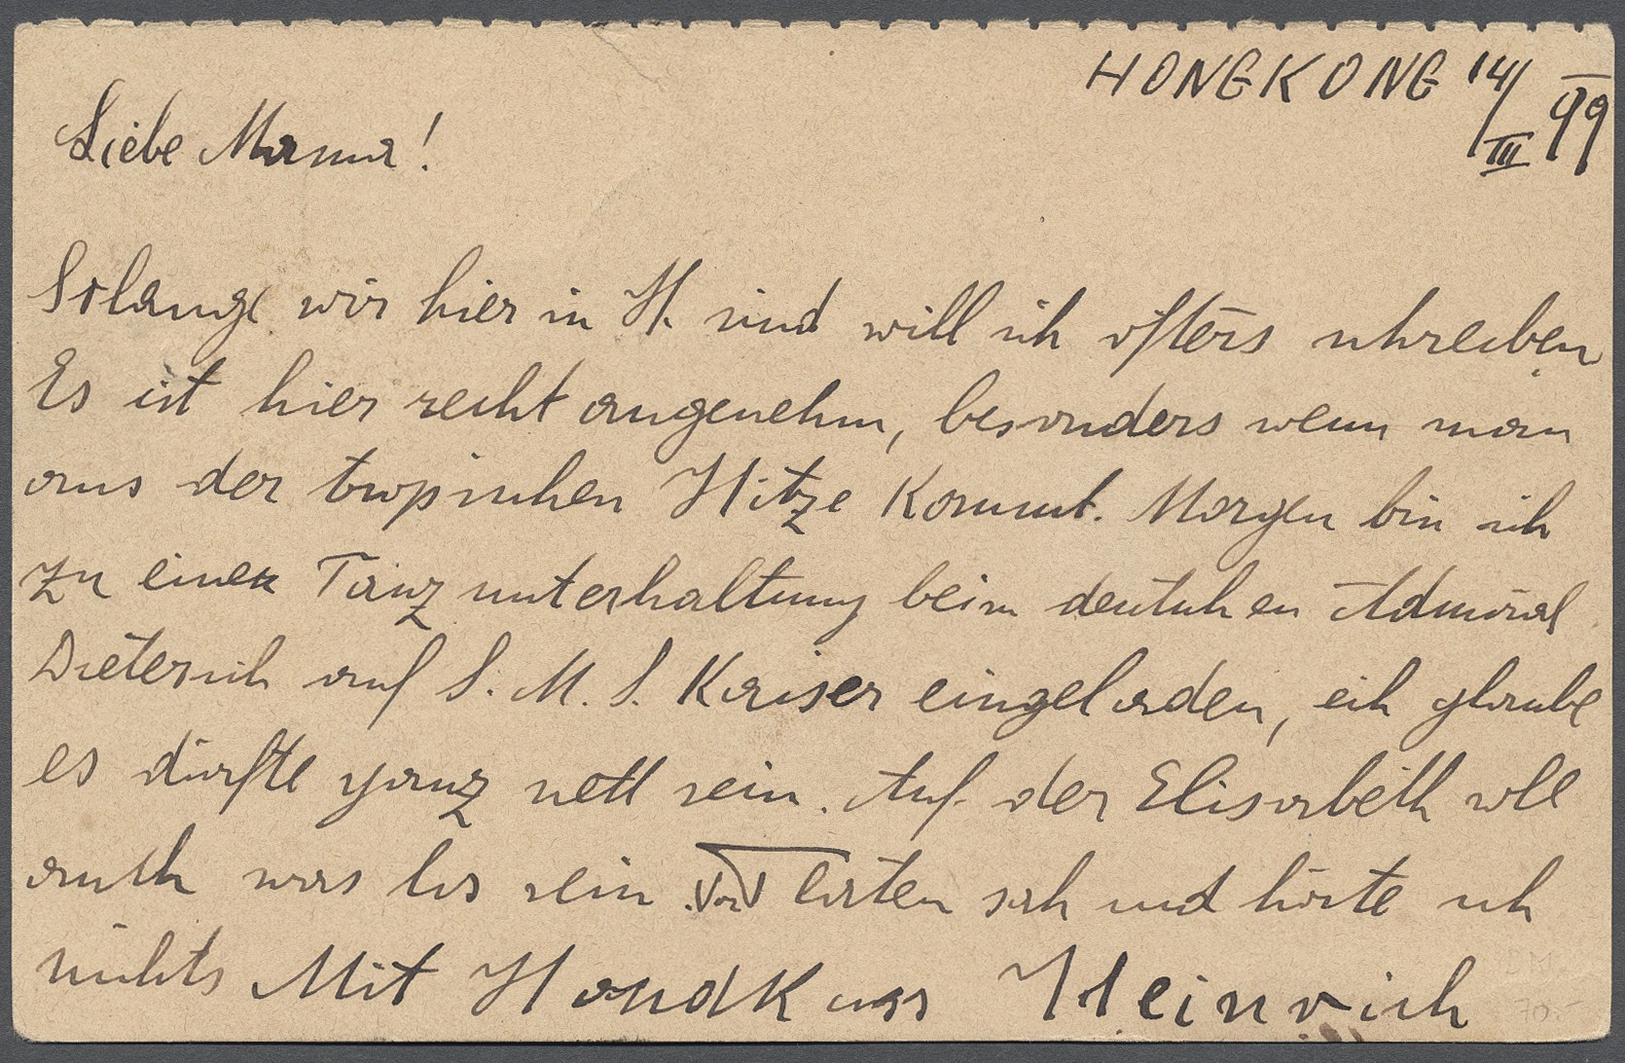 HONGKONG 14/III 99
Liebe Mama!
Solange wir hier in H. sind will ich öfters schreiben
Es ist hier recht angenehm, besonders wenn man
aus der tropischen Hitze kommt. Morgen bin ich
zu einer Tanzunterhaltung beim deutschen Admiral
Dieterich auf S. M. S. Kaiser eingeladen, ich glaube
es dürfte ganz nett sein. Auf der Elisabeth soll
auch was los sein von sah und hörte ich
nichts Mit Handkuss Heinrich